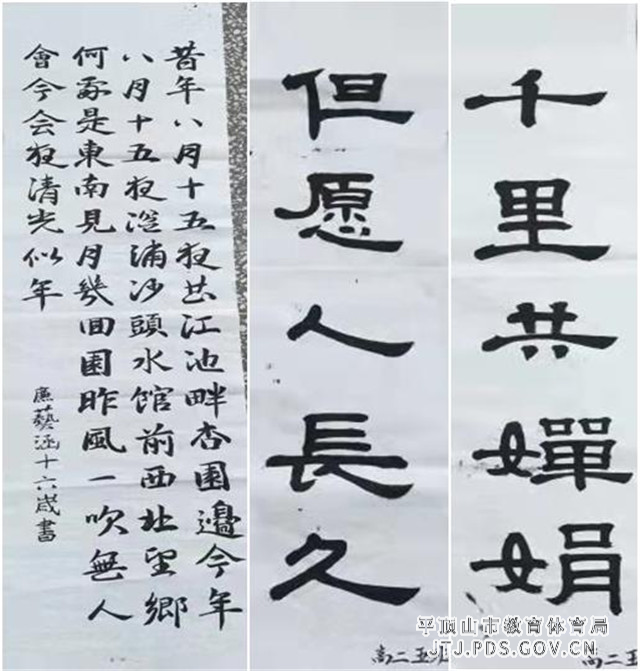 昔年八月十五夜曲江池畔杏園邊今年
八月十五夜湓浦沙頭水館前西北望鄉
何處是東南見月幾回圓昨風一吹無人
會今会夜清光似年
廉藝涵十六歲書
但愿人長久
高二五
千里共嬋娟
高二五
平顶山市教育体育局
JTJ.PDS.GOV.CN